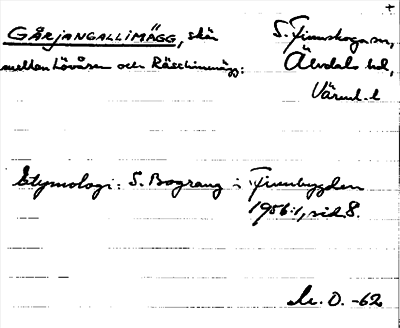 GÅRJANGALLIMÄGG, skär
mellan Lövåsen och Räschimmägg:
S. Finnskoga sn,
Älvdals hd,
Värml. l
Etymologi: S. Bograng i Finnbygden
1956:1, sid 8.
O. -62